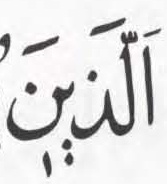 اَلَّذٖينَ